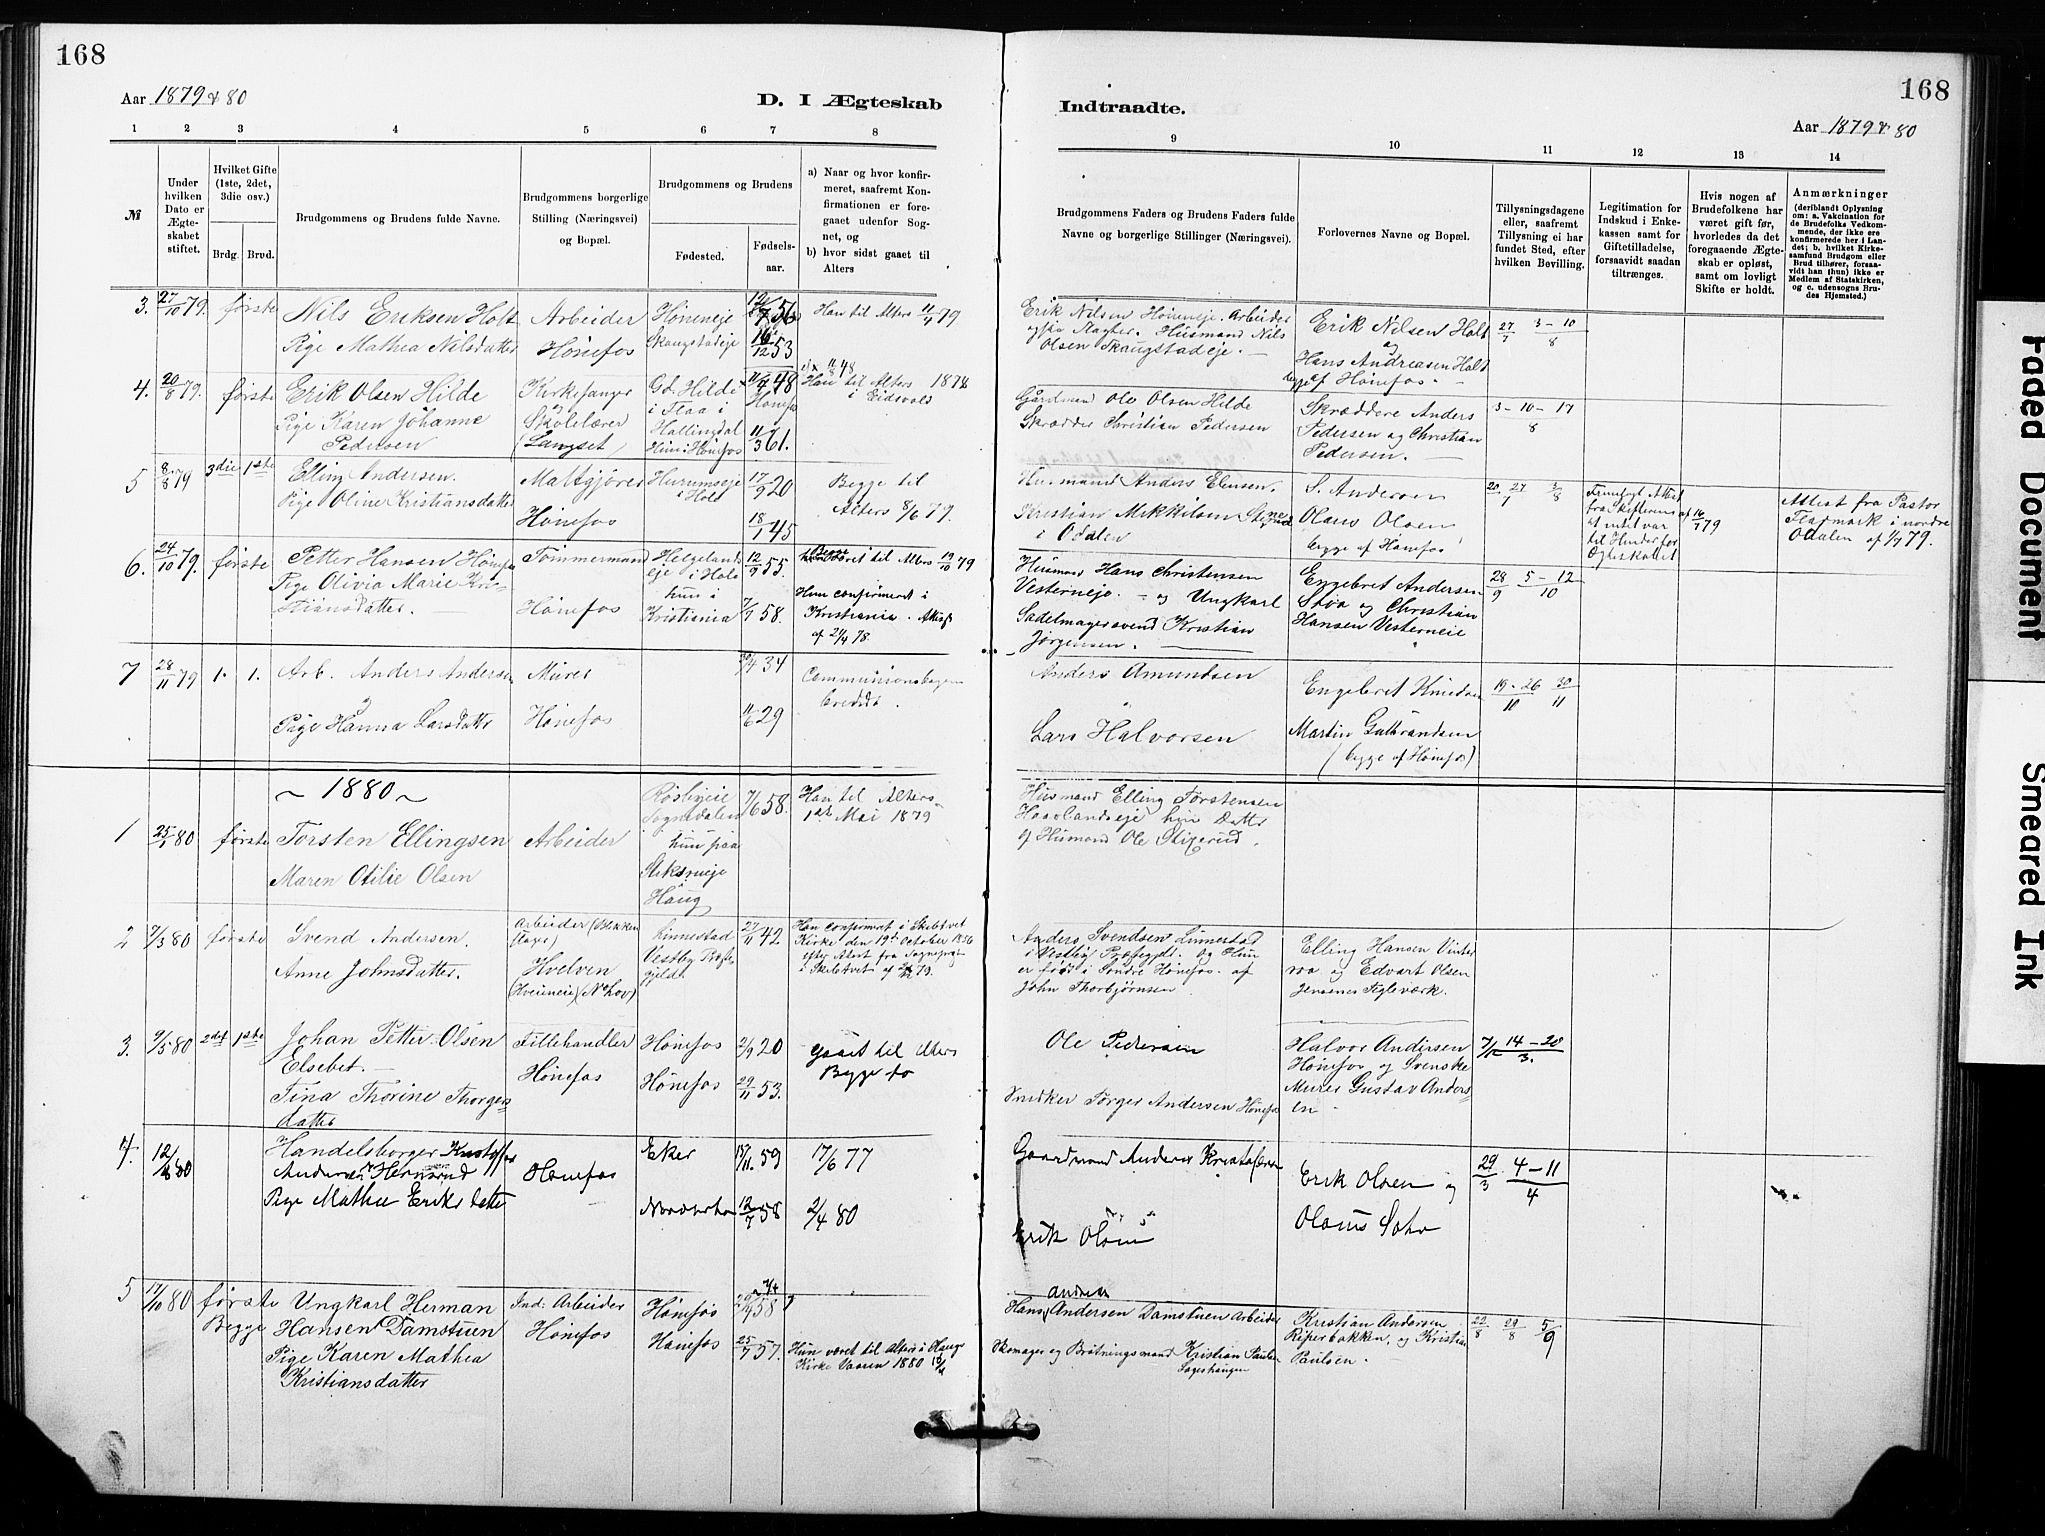 168
168
Aar 1879 & 80
D. I Ægteskab
Indtraadte.
Aar 1879 & 80
1 2 3 4 5 6 7 8
9 10 11 12 13 14
№
Under
hvilken
Dato er
Ægte-
skabet
stiftet.
Hvilket Gifte
(1ste, 2det,
3die osv.)
Brdg. Brud.
Brudgommens og Brudens fulde Navne.
Brudgommens borgerlige
Stilling (Næringsvei)
og Bopæl.
Brudgommens og Brudens
Fødested.
Fødsels-
aar.
a) Naar og hvor konfir-
meret, saafremt Kon-
firmationen er fore-
gaaet udenfor Sog-
net, og
b) hvor sidst gaaet til
Alters
Brudgommens Faders og Brudens Faders fulde
Navne og borgerlige Stillinger (Næringsvei).
Forlovernes Navne og Bopæl.
Tillysningsdagene
eller, saafremt
Tillysning ei har
fundet Sted, efter
hvilken Bevilling.
Legitimation for
Indskud i Enke-
kassen samt for
Giftetilladelse,
forsaavidt saadan
tiltrænges.
Hvis nogen af
Brudefolkene har
været gift før,
hvorledes da det
foregaaende Ægte-
skab er opløst,
samt om lovligt
Skifte er holdt.
Anmærkninger
(deriblandt Oplysning
om: a. Vakcination for
de Brudefolks Vedkom-
mende, der ikke ere
konfirmerede her i Lan-
det; b. hvilket Kirke-
samfund Brudgom eller
Brud tilhører, forsaa-
vidt han (hun) ikke er
Medlem af Statskirken,
og c. udensogns Bru-
des Hjemsted.)
3. 27/10 79. første
Nils Eriksen Holt
Pige Mathea Nilsdatter
Arbeider
Hønefos
Høneneje
Skaugstadeje
56
16/12 53
Han til Alters 11/4 79
Erik Nilsen Høneneje. Arbeider
Husmand Nils
Olsen Skaugstadeje.
Erik Nilsen Holt
og
Hans Andreasen Holt
begge af Hønefos.
27/7 3 - 10/8
4. 20/8 79. første
Erik Olsen Hilde
Pige Karen Johanne
Pedersen
Kirkesanger
og
Skolelærer
(Langset
Gd. Hilde
i Flaa i
Hallingdal
Hun i Hønefos
48
Hønefos
11/3 61.
Han til Alters 1878
i Eidsvold
Gårdmand Ole Olsen Hilde
Skrædder Christian Pedersen
Skræddere Anders
Pedersen og Christian
Pedersen.
3 - 10 - 17/8
5 8/8 79 3die 1ste
Elling Andersen.
Pige Oline Kristiansdatter
Maltgjører
Hønefos
Hurumseje
i Hole
17/9 20
18/1 45
Begge til
Alters 8/6 79.
Husmand Anders Elensen.
Kristian Mikkilsen
i Odalen
S. Andersen
Olaus Olsen
begge af Hønefos
20. 27/7 3/8
Fremlagt Attest
fra Skifteretten af
at intet var
til Hinder for
Ægteskabet
16/7 79
Attest fra Pastor
Flagmark i nordre
Odalen af 1/7 79.
6. 24/10 79. første
Petter Hansen Hønefos
Pige Olivia Marie Kri-
stiansdatter.
Tømmermand
Hønefos
Helgelands
eje i Hole
hun i
Kristiania
12/9 55.
7/7 58.
Begge været til Alters 19/10 79
Hun confirmeret i
Kristiania. Attest
af 2/4 78.
Husmand Hans Christensen
Vesterneje. og Ungkarl
Sadelmagersvend Kristian
Jørgensen.
Engebret Andersen
Støa og Christian
Hansen Vesterneie
28/9 5 - 12/10
7 28/11 79 1. 1.
Arb. Anders Andersen
og
Pige Hanna Larsdatter
Murer
Hønefos
30/4 34
11/6 29
Communionsbogen
Anders Amundsen
Lars Halvorsen
Engebret Knudsen
Martin Gulbrandsen
(begge af Hønefos)
19 - 26/10 30/11
~ 1880 ~
1 25/1 80 første
Torsten Ellingsen
Maren Otilie Olsen
Arbeider
Røsbyeie
Sognedalen
hun paa
Haug
7/6 58.
Han til Alters
1ste Mai 1879
Husmand Elling Torstensen
Haavlandseje hun Datter
af Husmand Ole Stixerud.
2 7/3 80 første
Svend Andersen.
Anne Johnsdatter.
Arbeider (Blakken
Hvelven
(Hveineie) (N. Hov)
Linnestad
Vestby Præste-
gjeld
27/11 42
Han confirmeret i Skibtvet
Kirke den 19de October 1856
efter Attest fra Sognepræst
i Skibtvet af 79.
Anders Svendsen Linnestad
i Vestby Præstegjeld. og Hun
er født i Søndre Hønefos. af
John Thorbjørnsen
Elling Hansen Vinter
roa og Edvart Olsen
Jensenes Teglværk.
3. 9/5 80 2det 1ste
Johan Petter Olsen
Elsebet.
Tina Thorine Thorger-
datter
Fillehandler
Hønefos
Hønefos
Hønefos
2/9 20
29/11 53.
gaaet til Alters
Begge to
Ole Pedersen
Snidker Torger Andersen Hønefos
Halvor Andersen
Hønefos, og Svenske
Murer Gustav Anders-
en
14 - 20/3.
4. 80
Handelsborger Kristoffer
Andersen Hernsrud
Pige Mathea Eriksdatter
Hønefos
Eker
Norderhov
17/11. 59
12/7 58
17/6 77
2/4 80
Gaardmand Anders Kristofersen
Erik Olsen
Erik Olsen og
Olaus Sohr
29/3 4 - 11/4
5 17/10 80 første
Begge
Ungkarl Herman
Hansen Damstuen
Pige Karen Mathea
Kristiansdatter
Ind. Arbeider
Hønefos
Hønefos
Hønefos
58
25/7 57.
Hun været til Alters i Haugs
Kirke Vaaren 1880
Andreas
Hans Andersen Damstuen Arbeider
Skomager og Brøtningsmand Kristian Paulsen
Sagerhaugen
Kristian Andersen
Riperbakken, og Kristian
Paulsen.
22/8 29/8 5/9
Faded Document
Smeared Ink